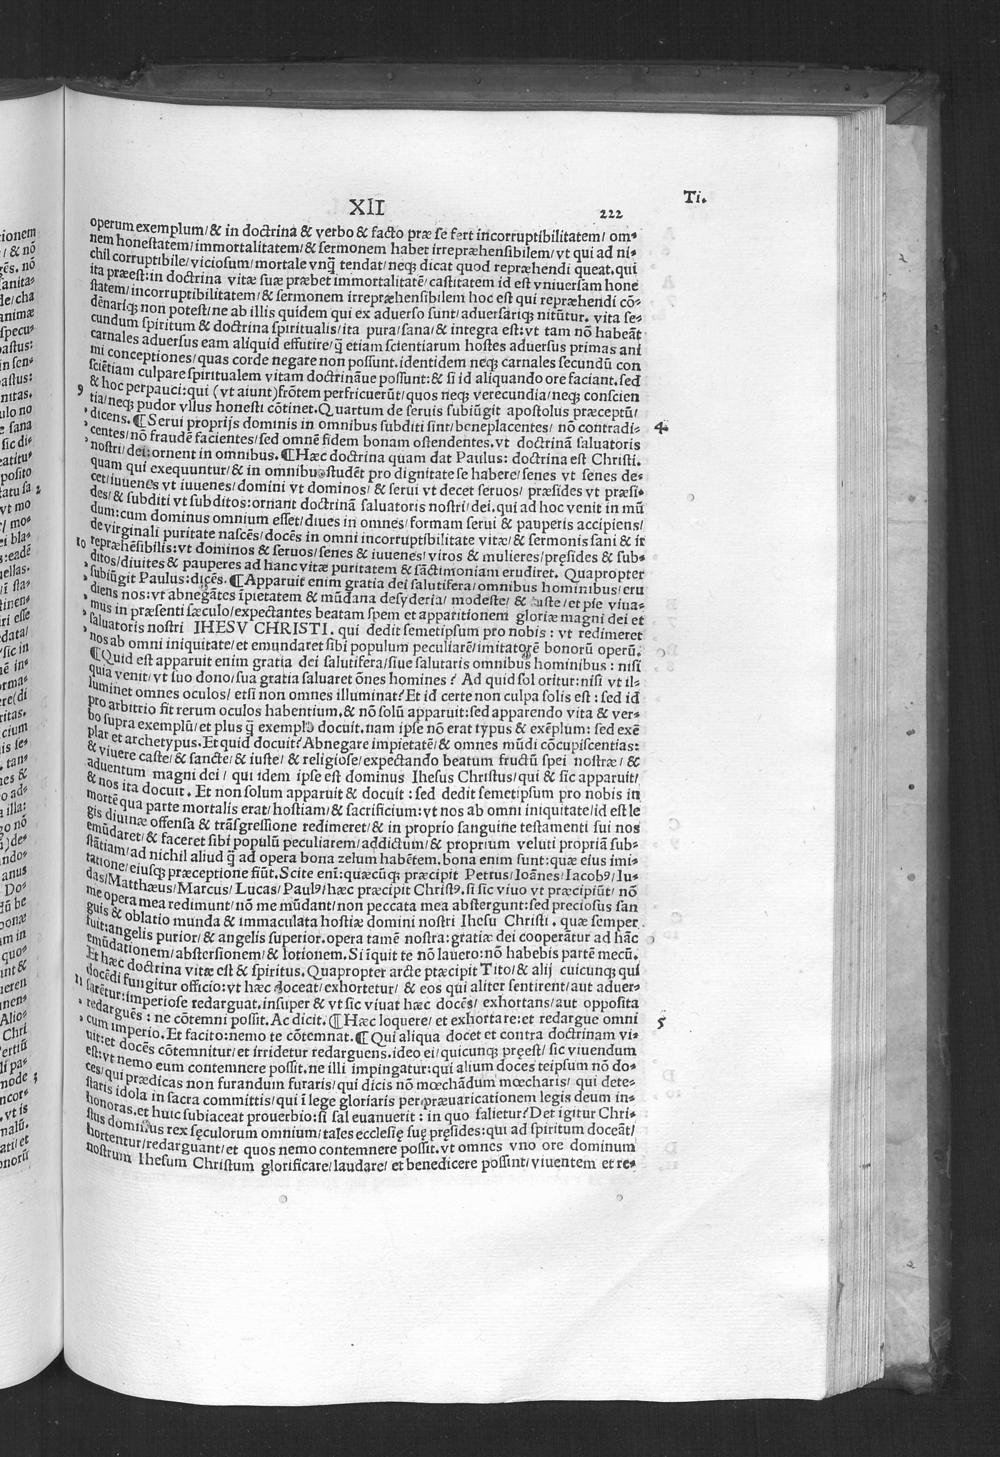 XII 222 Ti.
operum exemplum/ & in doctrina & verbo & facto præ se fert incorruptibilitatem/ om⸗
nem honestatem/ immortalitatem/ & sermonem habet irrepræhensibilem/ vt qui ad ni⸗
chil corruptibile/ viciosum/ mortale vnq̃ tendat/ neqꝫ dicat quod repræhendi queat. qui
ita præest: in doctrina vitæ suæ præbet immortalitatẽ/ castitatem id est vniuersam hone
statem/ incorruptibilitatem/ & sermonem irrepræhensibilem hoc est qui repræhendi cõ⸗
dẽnariqꝫ non potest/ ne ab illis quidem qui ex aduerso sunt/ aduersariqꝫ nitũtur. vita se⸗
cundum spiritum & doctrina spiritualis/ ita pura/ sana/ & integra est: vt tam nõ habeãt
carnales aduersus eam aliquid effutire/ q̃ etiam scientiarum hostes aduersus primas ani
mi conceptiones/ quas corde negate non possunt. identidem neqꝫ carnales secundũ con
sciẽtiam culpare spiritualem vitam doctrinãue possunt: & si id aliquando ore faciant. sed
& hoc perpauci: qui (vt aiunt) frõtem perfricuerũt/ quos neqꝫ verecundia/ neqꝫ conscien
9 tia/ neqꝫ pudor vllus honesti cõtinet. Quartum de seruis subiũgit apostolus præceptũ/
dicens. ¶ Serui proprijs dominis in omnibus subditi sint/ beneplacentes/ nõ contradi⸗ 4
centes/ nõ fraudẽ facientes/ sed omnẽ fidem bonam ostendentes. vt doctrinã saluatoris
nostri/ dei: ornent in omnibus. ¶ Hæc doctrina quam dat Paulus: doctrina est Christi.
quam qui exequuntur/ & in omnibus studẽt pro dignitate se habere/ senes vt senes de⸗
cet/ iuuenes vt iuuenes/ domini vt dominos/ & serui vt decet seruos/ præsides vt præsi⸗
des/ & subditi vt subditos: ornant doctrinã saluatoris nostri/ dei. qui ad hoc venit in mũ
dum: cum dominus omnium esset/ diues in omnes/ formam serui & pauperis accipiens/
de virginali puritate nascẽs/ docẽs in omni incorruptibilitate vitæ/ & sermonis sani & ir
10 repræhẽsibilis: vt dominos & seruos/ senes & iuuenes/ viros & mulieres/ pręsides & sub⸗
ditos/ diuites & pauperes ad hanc vitæ puritatem & sãctimoniam erudiret. Quapropter
subiũgit Paulus: dicẽs. ¶ Apparuit enim gratia dei salutifera/ omnibus hominibus/ eru
diens nos: vt abnegãtes ĩpietatem & mũdana desyderia/ modeste/ & iuste/ et pie viua⸗
mus in præsenti sæculo/ expectantes beatam spem et apparitionem gloriæ magni dei et
saluatoris nostri IHESV CHRISTI. qui dedit semetipsum pro nobis: vt redimeret
nos ab omni iniquitate/ et emundaret sibi populum peculiarẽ/ imitatorẽ bonorũ operũ.
¶ Quid est apparuit enim gratia dei salutifera/ siue salutaris omnibus hominibus: nisi
quia venit/ vt suo dono/ sua gratia saluaret õnes homines? Ad quid sol oritur: nisi vt il⸗
luminet omnes oculos/ etsi non omnes illuminat? Et id certe non culpa solis est: sed id
pro arbitrio fit rerum oculos habentium. & nõ solũ apparuit: sed apparendo vita & ver⸗
bo supra exemplũ/ et plus q̃ exemplo docuit. nam ipse nõ erat typus & exẽplum: sed exẽ
plar et archetypus. Et quid docuit? Abnegare impietatẽ/ & omnes mũdi cõcupiscentias:
& viuere caste/ & sancte/ & iuste/ & religiose/ expectando beatum fructũ spei nostræ/ &
aduentum magni dei/ qui idem ipse est dominus Ihesus Christus/ qui & sic apparuit/
& nos ita docuit. Et non solum apparuit & docuit: sed dedit semetipsum pro nobis in
mortẽ qua parte mortalis erat/ hostiam/ & sacrificium: vt nos ab omni iniquitate/ id est le
gis diuinæ offensa & trãsgressione redimeret/ & in proprio sanguine testamenti sui nos
emũdaret/ & faceret sibi populũ peculiarem/ addictum/ & proprium veluti propriã sub⸗
stãtiam/ ad nichil aliud q̃ ad opera bona zelum habẽtem. bona enim sunt: quæ eius imi⸗
tatione/ eiusqꝫ præceptione fiũt. Scite enĩ: quæcũqꝫ præcipit Petrus/ Ioãnes/ Iacobꝰ/ Iu⸗
das/ Matthæus/ Marcus/ Lucas/ Paulꝰ/ hæc præcipit Christꝰ. si sic viuo vt præcipiũt/ nõ
me opera mea redimunt/ nõ me mũdant/ non peccata mea abstergunt: sed preciosus san
guis & oblatio munda & immaculata hostiæ domini nostri Ihesu Christi. quæ semper
fuit: angelis purior/ & angelis superior. opera tamẽ nostra: gratiæ dei cooperãtur ad hãc
emũdationem/ abstersionem/ & lotionem. Si ĩquit te nõ lauero: nõ habebis partẽ mecũ.
Et hæc doctrina vitæ est & spiritus. Quapropter arcte præcipit Tito/ & alij cuicunqꝫ qui
docẽdi fungitur officio: vt hæc doceat/ exhortetur/ & eos qui aliter sentirent/ aut aduer⸗
11 sarẽtur: imperiose redarguat. insuper & vt sic viuat hæc docẽs/ exhortans/ aut opposita
redarguẽs: ne cõtemni possit. Ac dicit. ¶ Hæc loquere/ et exhortare: et redargue omni 5
cum imperio. Et facito: nemo te cõtemnat. ¶ Qui aliqua docet et contra doctrinam vi⸗
uit: et docẽs cõtemnitur/ et irridetur redarguens. ideo ei/ quicunqꝫ pręest/ sic viuendum
est: vt nemo eum contemnere possit. ne illi impingatur: qui alium doces teipsum nõ do⸗
ces/ qui prædicas non furandum furaris/ qui dicis nõ mœchãdum mœcharis/ qui dete⸗
staris idola in sacra committis/ qui ĩ lege gloriaris per præuaricationem legis deum in⸗
honoras. et huic subiaceat prouerbio: si sal euanuerit: in quo salietur? Det igitur Chri⸗
stus dominus rex sęculorum omnium/ tales ecclesię suę pręsides: qui ad spiritum doceãt/
hortentur/ redarguant/ et quos nemo contemnere possit. vt omnes vno ore dominum
nostrum Ihesum Christum glorificare/ laudare/ et benedicere possint/ viuentem et re⸗